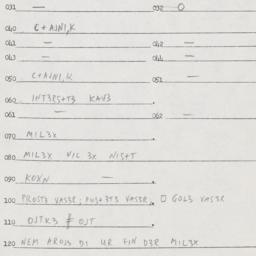 031 — 032 O
040 C+AJNI,K
041 — 042 —
043 — 044 —
050 C+AJNI,K 051 —
060 INT3RS+T3 KAV3
061 — 062 —
070 MIL3X
080 MIL3X VIC 3X NIS+T
090 KOXN —
100 PROST3 VAS3R; 3T3 VAS3R, □ GOL3 VAS3R
110 OJTK3 ‡ OJT
120 N3M AROJS DI UR FIN D3R MIL3X